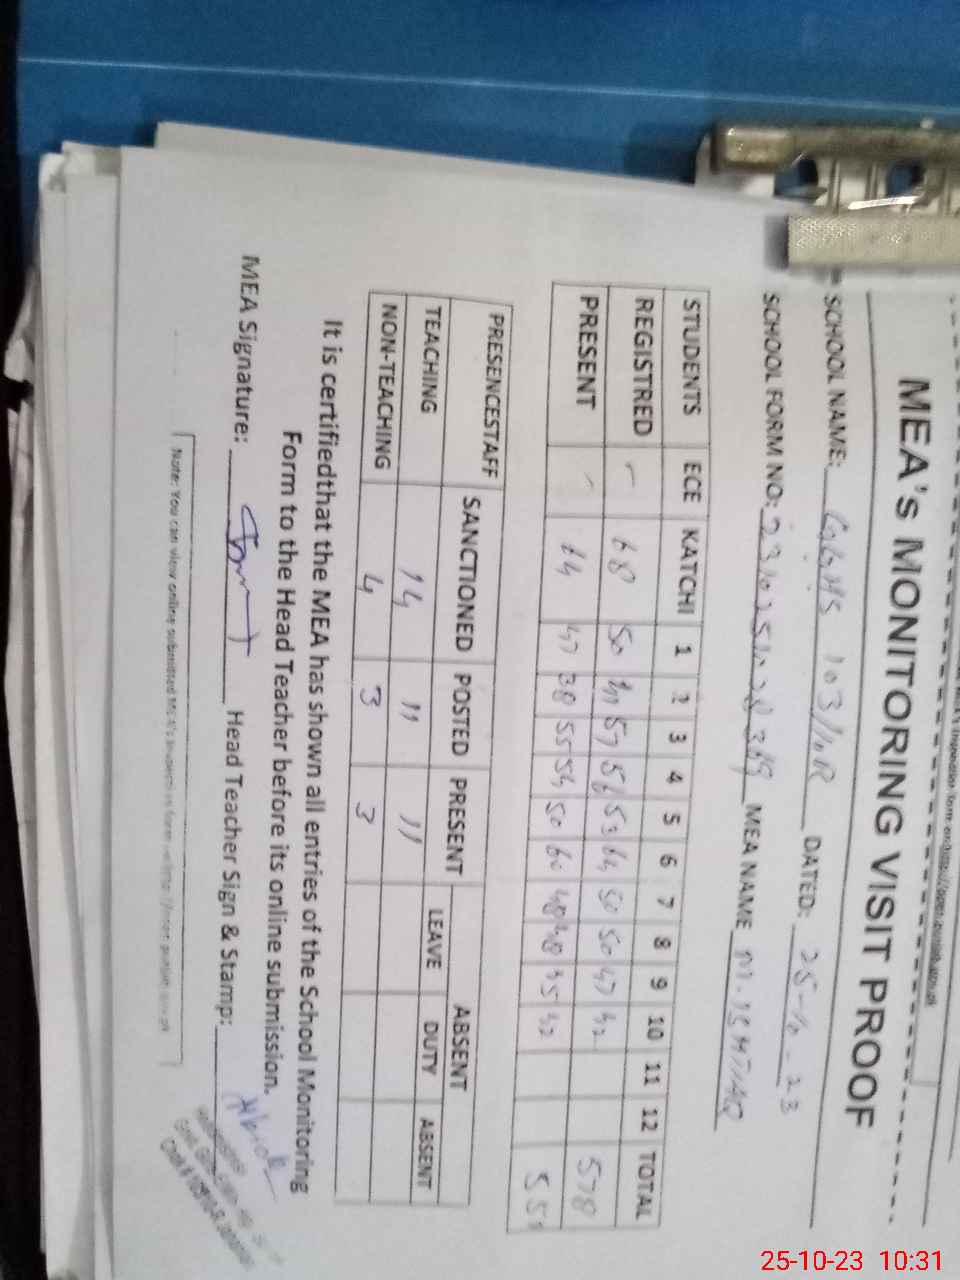 MEA's MONITORING VISIT PROOF
SCHOOL NAME: GGHS 103/10R DATED: 25-10-23
SCHOOL FORM NO: MEA NAME M. ISHTIAQ
STUDENTS ECE KATCHI 1 2 3 4 5 6 7 8 9 10 11 12 TOTAL
REGISTRED - 68 50 41 57 56 53 64 50 50 47 42 578
PRESENT - 64 47 38 55 54 50 60 48 48 45 42 551
PRESENCESTAFF SANCTIONED POSTED PRESENT ABSENT
LEAVE DUTY ABSENT
TEACHING 14 11 11
NON-TEACHING 4 3 3
It is certifiedthat the MEA has shown all entries of the School Monitoring
Form to the Head Teacher before its online submission.
MEA Signature: Head Teacher Sign & Stamp:
Note: You can view online submitted MEA's
25-10-23 10:31